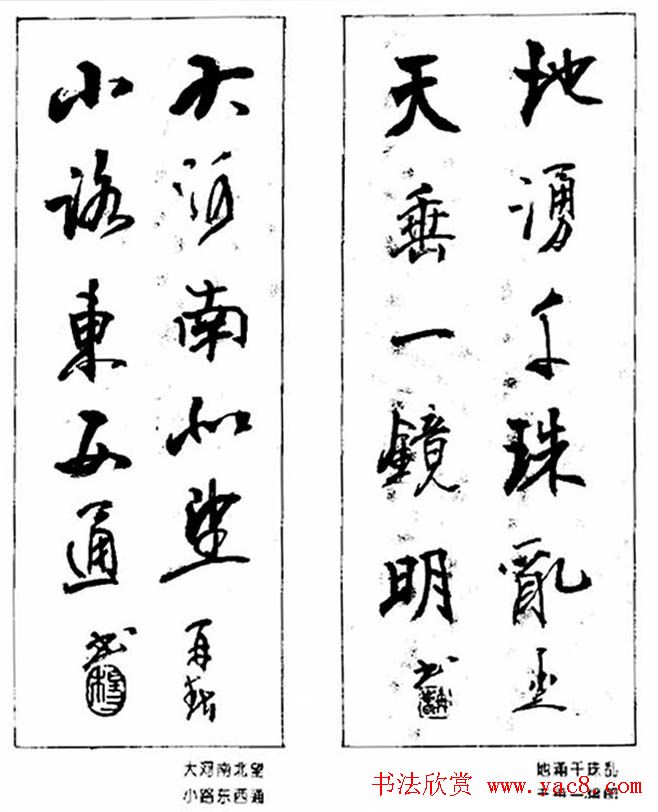 地湧千珠亂
天垂一鏡明
大河南北望
小路東西通
地涌千珠乱
大河南北望
小路东西通
书法欣赏 www.yac8.com